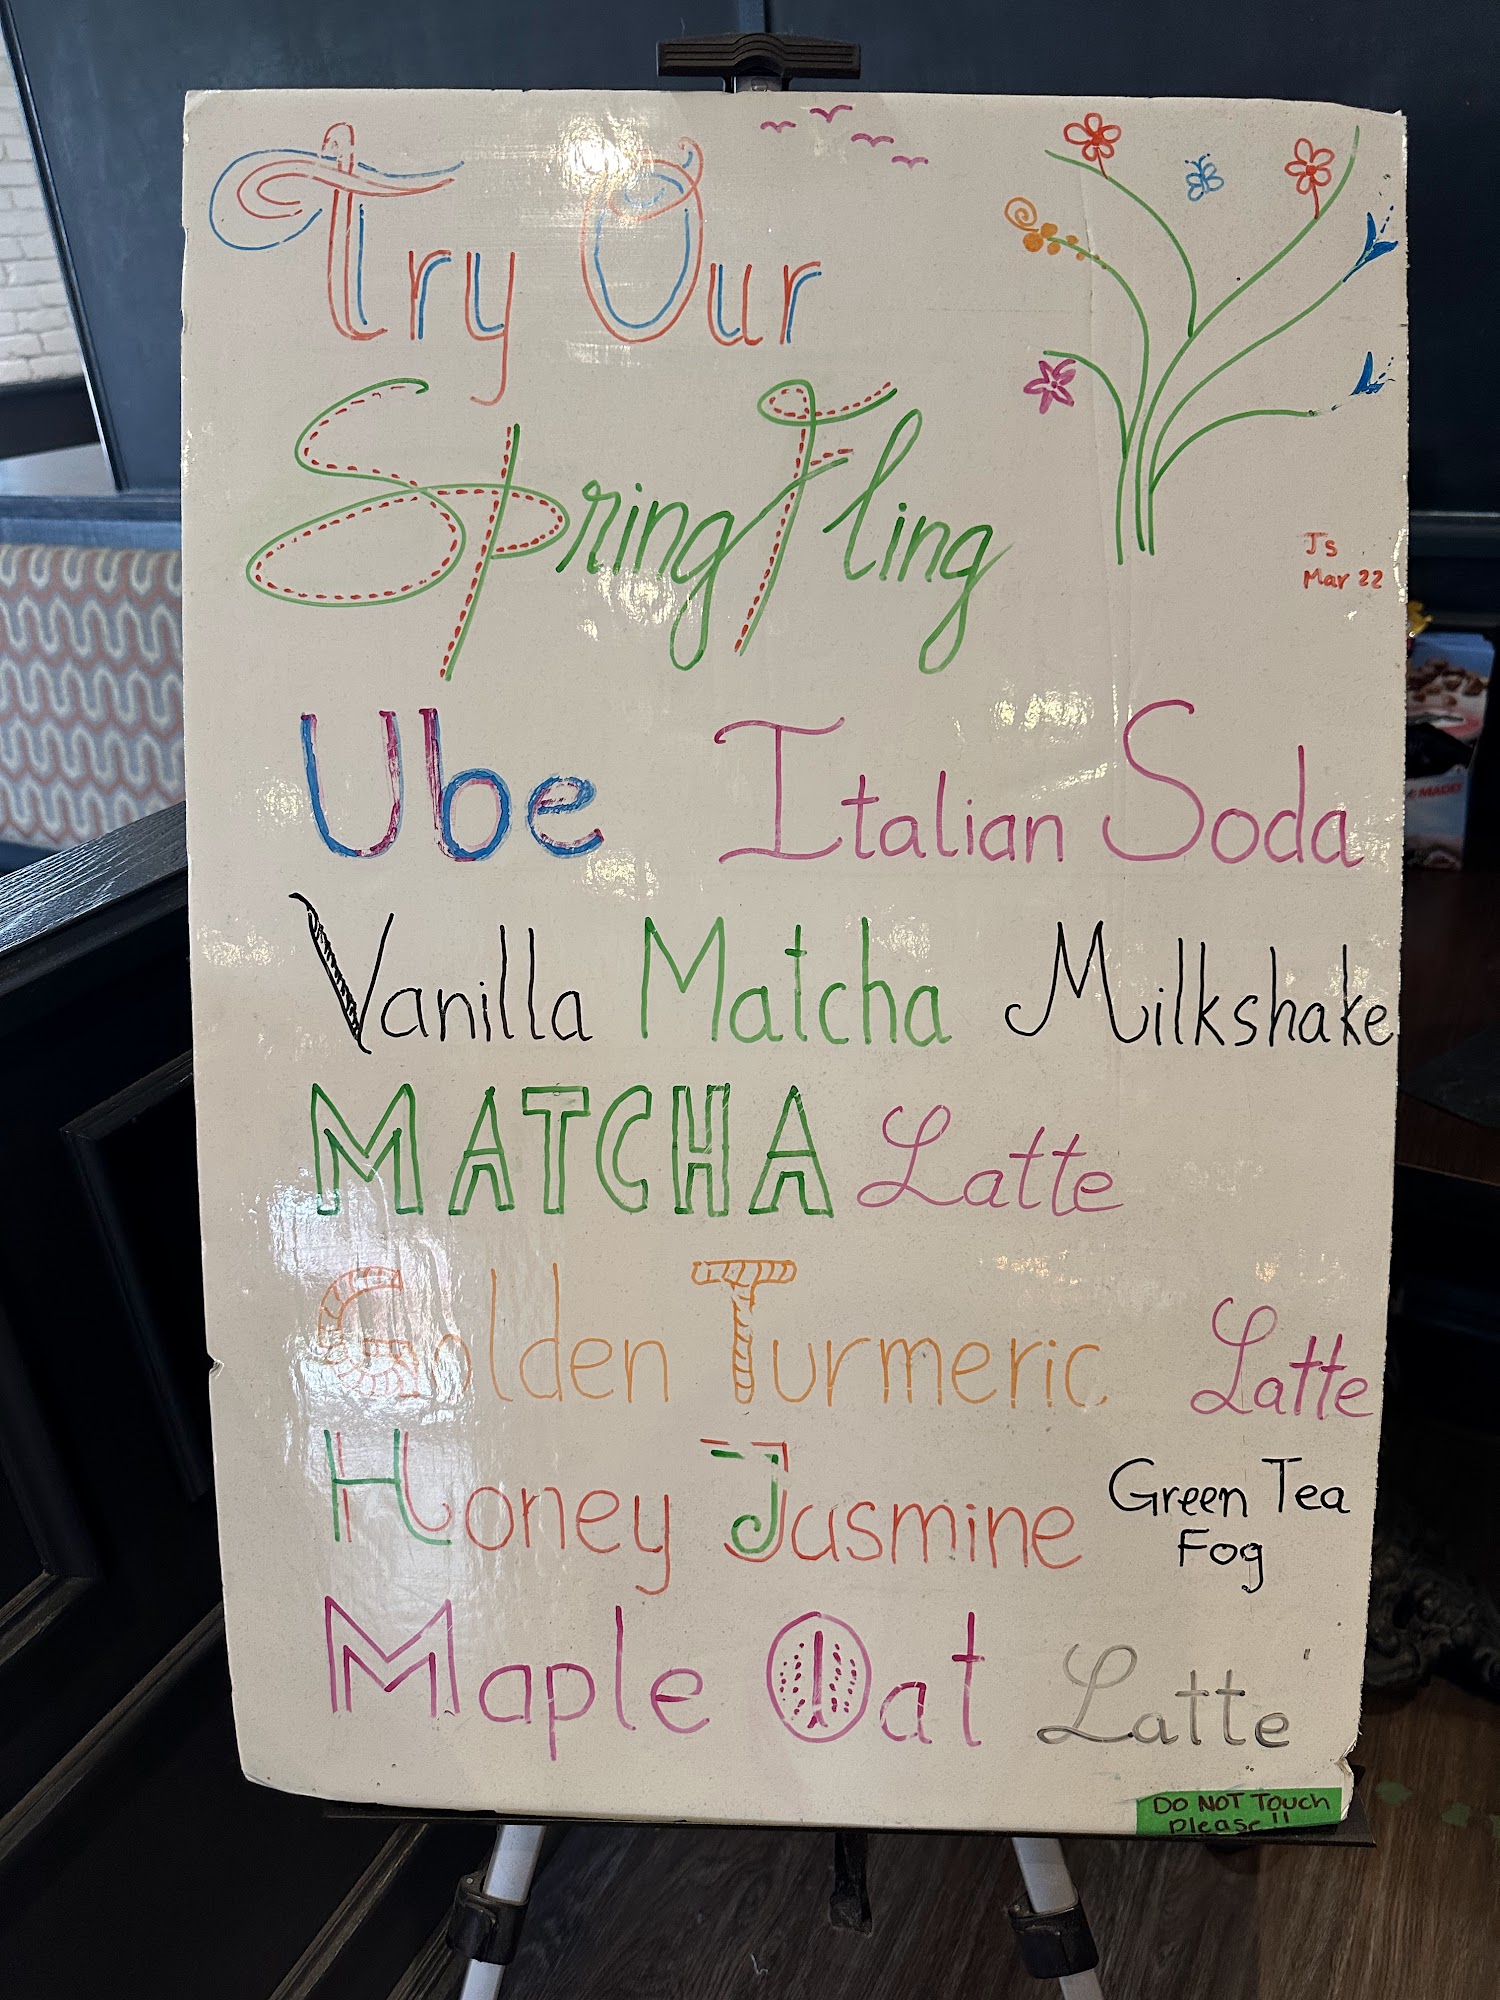 Try Our
Spring Fling
Js
Mar 22
Ube Italian Soda
Vanilla Matcha Milkshake
MATCHA Latte
Golden Turmeric Latte
Honey Jasmine Green Tea
Fog
Maple Oat Latte
DO NOT Touch
Please!!
MADE!